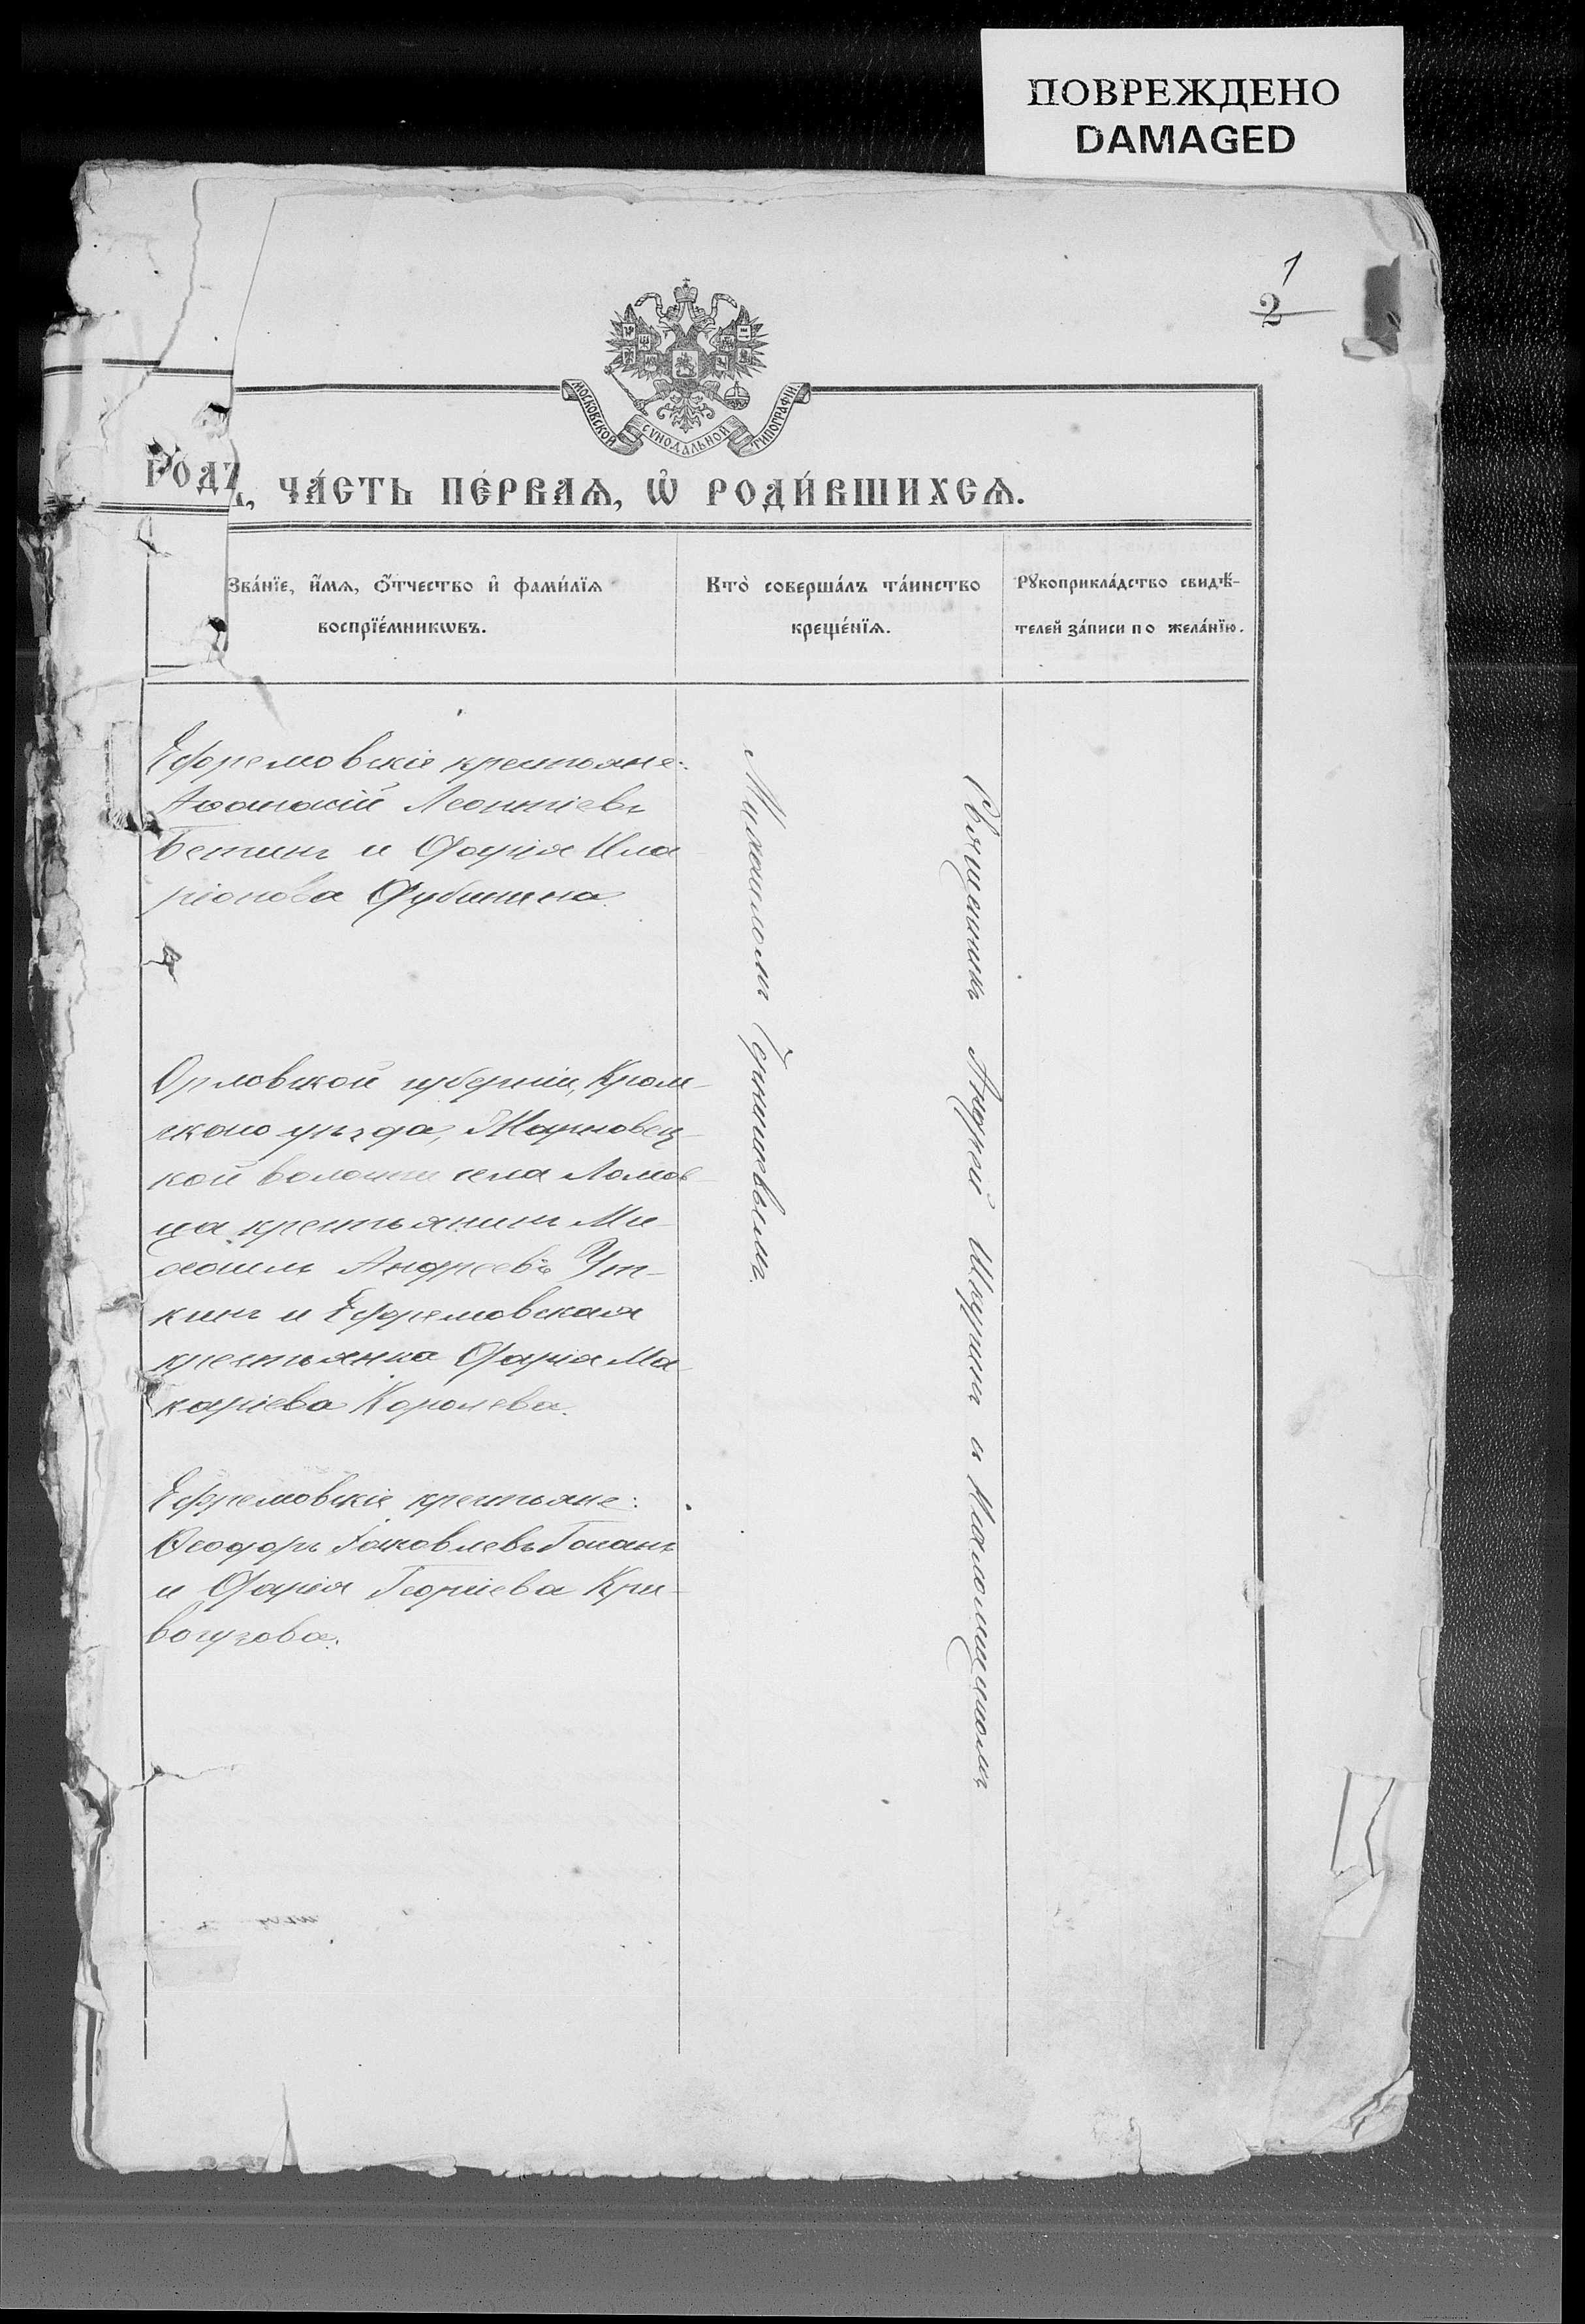 ПОВРЕЖДЕНО
DAMAGED
1
2
МОСКОВСКОЙ СУНОДАЛЬНОЙ ТИПОГРАФІИ.
РОДѢ, ЧА́СТЬ ПЕ́РВАѦ, Ѽ РОДИ́ВШИХСѦ.
Зва́нїе, и́мѧ, ѻ́тчество и҆ фами́лїѧ
воспрїе́мникѡвъ.
Кто̀ соверша́лъ та́инство
креще́нїѧ.
Рꙋкоприкла́дство свидѣ́-
телей за́писи по жела́нїю.
Ефремовскіе крестьяне:
Аѳанасій Леонтіевъ
Бетинъ и Дарія Ила
ріонова Дубинина.
Орловской губерніи, Кром-
скаго уѣзда,
кой волости села Ломов
ца крестьянинъ Ми-
хаилъ Андреевъ Ут-
кинъ и Ефремовская
крестьянка Дарія Ма-
каріева Королева.
Ефремовскіе крестьяне:
Ѳеодоръ Іаковлевъ
и Дарія Георгіева Кри-
вогузова.
Священникъ Андрей Шкурин с псаломщикомъ
Михаиломъ